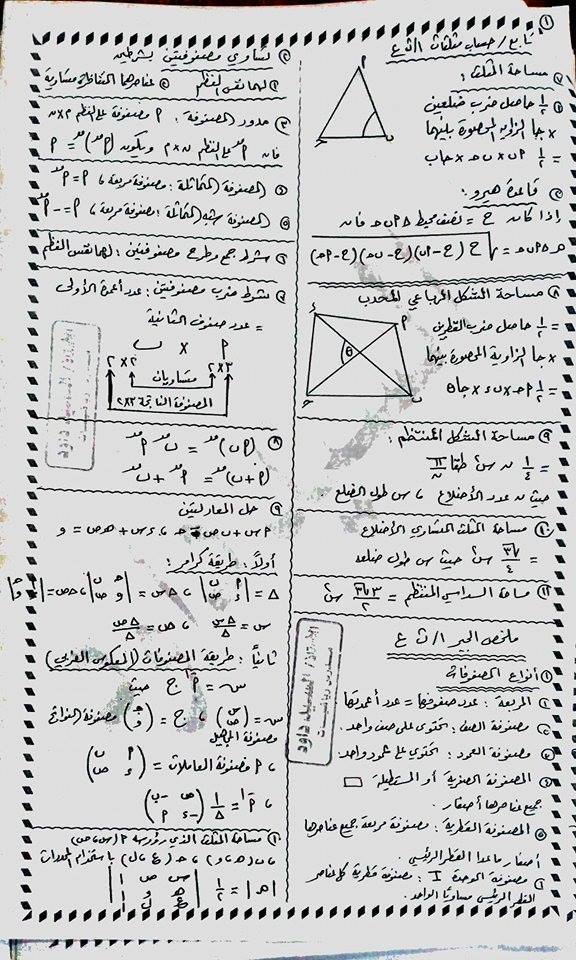 ①
تابع / حساب مثلثات ١/ث ع
مساحة المثلث :
① ١/٢ حاصل ضرب ضلعين
× جا الزاوية المحصورة بينهما
= ١/٢ ٩ب × بـ حـ × جاب
② قاعدة هيرو :
إذا كان ح = نصف محيط △ ٩بحـ فان
م △ ٩بحـ = √ح (ح-٩ب)(ح-بحـ)(ح-٩حـ)
٨ مساحة الشكل الرباعي المحدب
= ١/٢ حاصل ضرب القطرين
× جا الزاوية المحصورة بينهما
= ١/٢ ٩حـ × بء × جا θ
٩ مساحة الشكل المنتظم :
= ١/٤ ن س² ظتا π/ن
حيث ن عدد الأضلاع ، س طول الضلع
١٠ مساحة المثلث المتساوي الأضلاع
= √٣/٤ س² حيث س طول ضلعه
١١ مساحة السداسي المنتظم = ٣√٣/٢ س²
ملخص الجبر ١/ث ع
① أنواع المصفوفات
المربعة : عدد صفوفها = عدد أعمدتها
مصفوفة الصف : تحتوى على صف واحد .
مصفوفة العمود : تحتوى على عمود واحد
المصفوفة الصفرية أو المستطيلة
جميع عناصرها أصفار .
المصفوفة القطرية : مصفوفة مربعة جميع عناصرها
أصفار ماعدا القطر الرئيسي .
مصفوفة الوحدة I : مصفوفة قطرية كل عناصر
القطر الرئيسي مساويًا الواحد .
② تساوي مصفوفتين بشرطين
① لهما نفس النظم ② عناصرهما المتناظرة متساوية
③ مدور المصفوفة : ٩ مصفوفة على النظم م×ن
فان ٩ᵐᵈ على النظم ن×م ويكون (٩ᵐᵈ)ᵐᵈ = ٩
المصفوفة المتماثلة : مصفوفة مربعة ، ٩ = ٩ᵐᵈ
المصفوفة شبه المتماثلة : مصفوفة مربعة ، ٩ = -٩ᵐᵈ
شرط جمع وطرح مصفوفتين : لهما نفس النظم
شرط ضرب مصفوفتين : عدد أعمدة الأولى
= عدد صفوف الثانية
٩ × ب
٢×٣ ٢×٢
متساويان
المصفوفة الناتجة ٢×٣
٨ (٩ب)ᵐᵈ = بᵐᵈ ٩ᵐᵈ
(٩+ب)ᵐᵈ = ٩ᵐᵈ + بᵐᵈ
٩ حل المعادلتين
٩س + ب ص = حـ ، ءس + هـ ص = و
أولًا : طريقة كرامر :
س = △س/△ ، ص = △ص/△
ثانيًا : طريقة المصفوفات (المعكوس الضربي)
س = ٩⁻¹ جـ حيث
مصفوفة الثوابت
مصفوفة المجاهيل
، ٩ مصفوفة المعاملات =
١٠ مساحة المثلث الذي رؤوسه ٩ (س ، ص)
باستخدام المحددات
الأستاذ / السيد داود
مدرس رياضيات